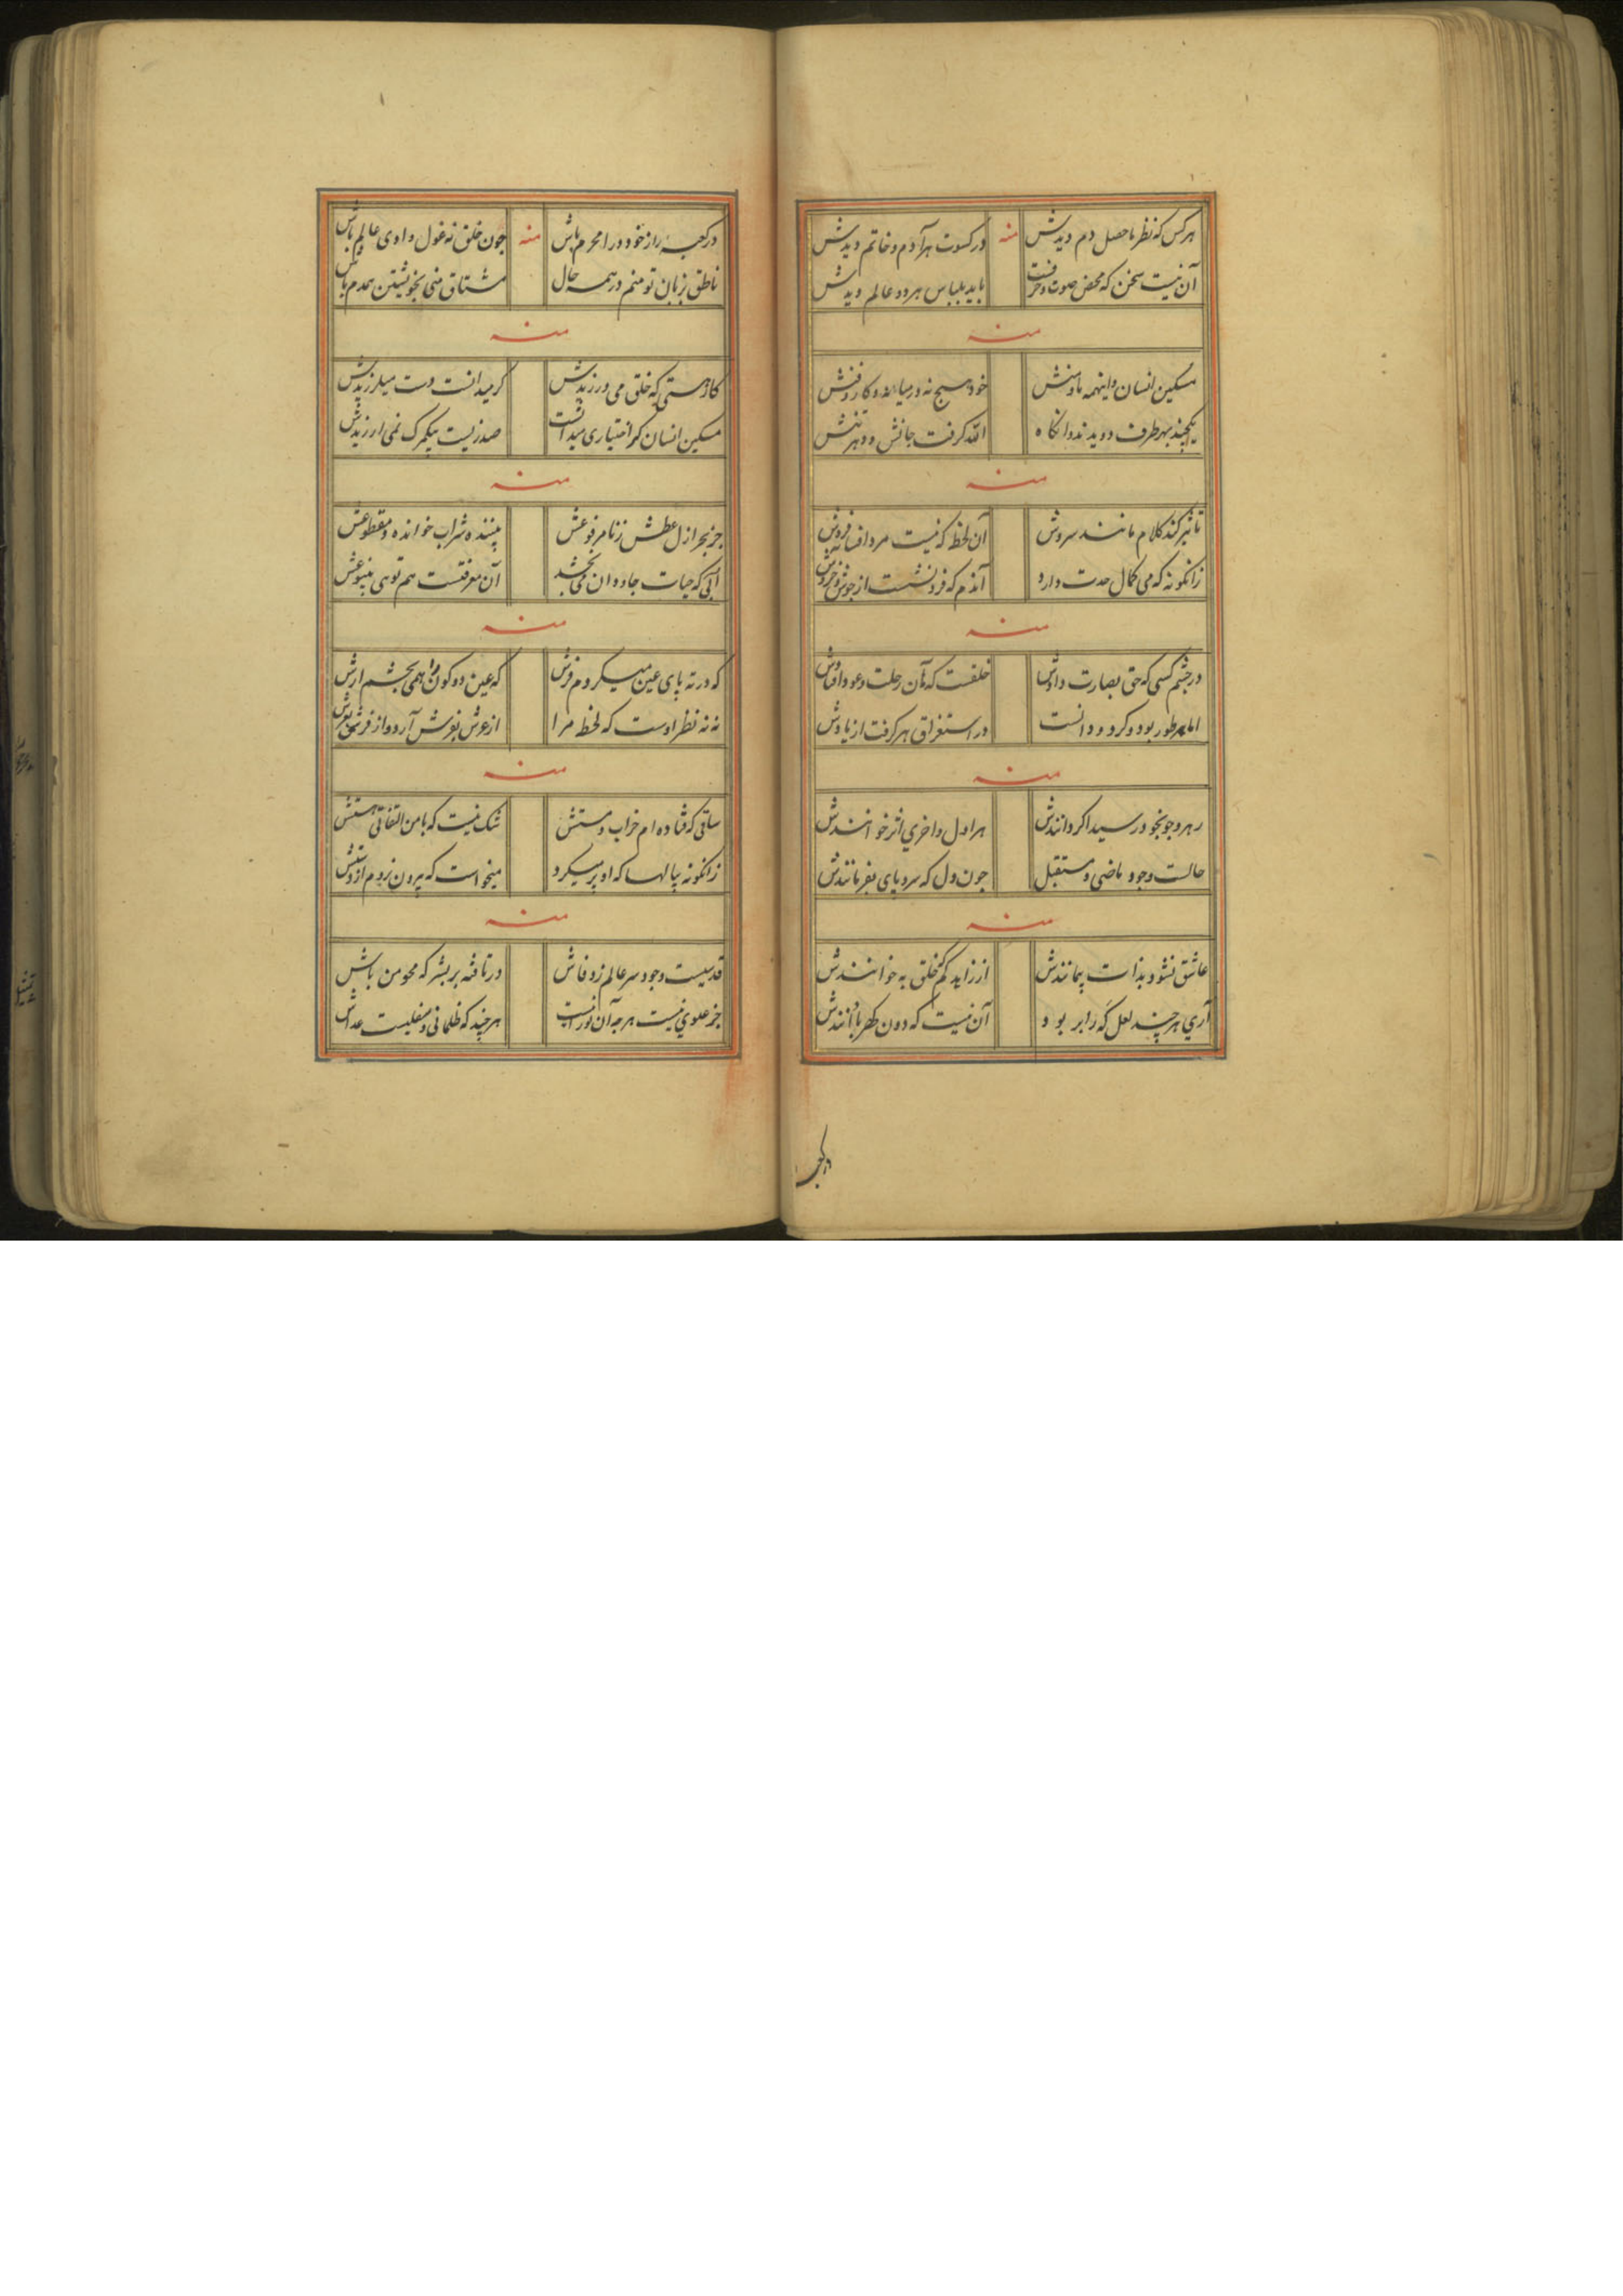 هرکس که نظر باحصل دم دیدش منه در کسوت هر آدم و خاتم دیدش
آن نیست سخن که محض صوت و حرفست باید بلباس هر دو عالم دیدش
منه
مسکین انسان و اینهمه ما و منش خود هیچ نه در میانه و کار و فنش
یکچند بهر طرف دویدند و انکاه الله کرفت جانش و دهر تنش
منه
تاثیر کند کلام مانند سروش آن لحظه که نیست مرد افسانه فروش
زانکونه که می کمال حدت دارد آندم که فرو نشست از جوش و خروش
منه
در چشم کسی که حق بصارت دادش خلقست که آن رحلت و عود
اما بهر طور بود و کرد و دانست در استغراق هر کرفت از یادش
منه
رهرو چو بخود رسید اکر دانندش هر اول و آخری اثر خوانندش
حالست وجود ماضی و مستقبل جون دل که سر و پای بفرمانندش
منه
عاشق نشود بذات بیمانندش از زاید کم خلق به خوانندش
آری هر چند لعل که رابر بود آن نیست که دون کهربا دانندش
درکعبه
درکعبه راز خود درا محرم باش منه جون خلق نه غول وادی عالم باش
ناطق زبان تو منم در همه حال مشتاق منی بخویشتن همدم باش
منه
کار هستی که خلق می ورزیدش کر میدانست دست میلرزیدش
مسکین انسان کر اختیاری میداشت صد زیست بیکمرک نمی ارزیدش
منه
جز بحر ازل عطش زنا مرفوعش بیننده شراب خوانده و مقطوعش
آبی که حیات جاودان می بخشد آن معرفتست هم توهی ینبوعش
منه
که در ته پای عین میکردم فرش که عین دو کون را همی بخشم ارش
نه نه نظر اوست که لحظ مرا از عرش بفرش آرد و از فرش بعرش
منه
ساقی که فتاده ام خراب و مستش شک نیست که با من التفاتی هستش
زانکونه پیالها که او پر میکرد میخواست که بیرون نروم از دستش
منه
قدسیست وجود سر عالم زو فاش در تافته بر بشر که محو من باش
جز علوی نیست هر چه آن نورانیست هر چند که ظلمانی و سفلیست عداش